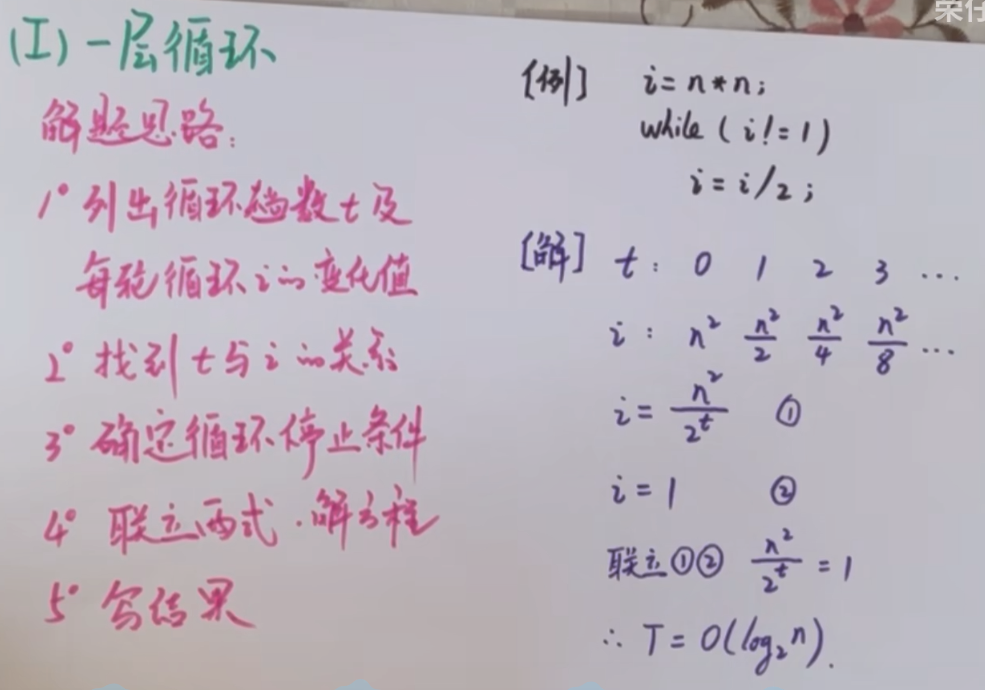 荣仔
(I) 一层循环
解题思路:
1° 列出循环趟数t及
每轮循环i的变化值
2° 找到t与i的关系
3° 确定循环停止条件
4° 联立两式,解方程
5° 写结果
[例] i=n*n;
while (i!=1)
i=i/2;
[解] t: 0 1 2 3 ...
i: n² n²/2 n²/4 n²/8 ...
i = n²/2^t ①
i = 1 ②
联立①② n²/2^t = 1
∴ T = O(log₂n).